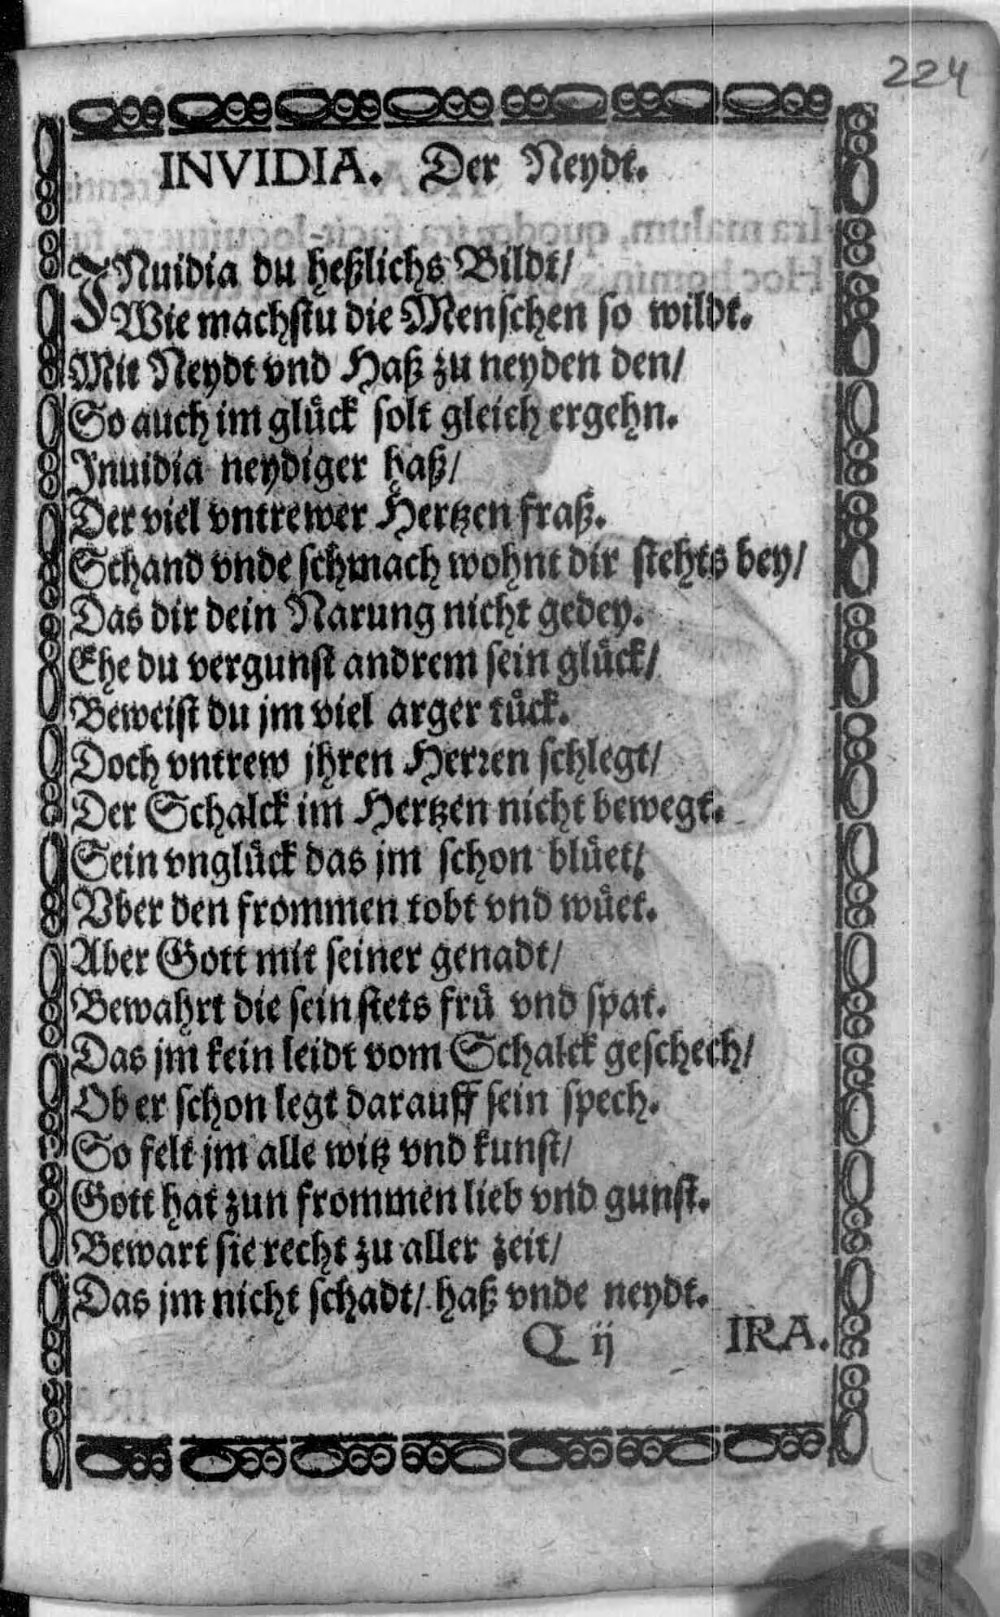 224
INVIDIA. Der Neydt.
INuidia du heßlichs Bildt/
Wie machstu die Menschen so wildt.
Mit Neydt vnd Haß zu neyden den/
So auch im gluͤck solt gleich ergehn.
Inuidia neydiger haß/
Der viel vntrewer Hertzen fraß.
Schand vnde schmach wohnt dir stehts bey/
Das dir dein Narung nicht gedey.
Ehe du vergunst andrem sein gluͤck/
Beweist du jm viel arger tuͤck.
Doch vntrew jhren Herren schlegt/
Der Schalck im Hertzen nicht bewegt.
Sein vngluͤck das jm schon bluͤet/
Vber den frommen tobt vnd wuͤet.
Aber Gott mit seiner genadt/
Bewahrt die sein stets fruͤ vnd spat.
Das jm kein leidt vom Schalck geschech/
Ob er schon legt darauff sein spech.
So felt jm alle witz vnd kunst/
Gott hat zun frommen lieb vnd gunst.
Bewart sie recht zu aller zeit/
Das jm nicht schadt/ haß vnde neydt.
Q ij IRA.